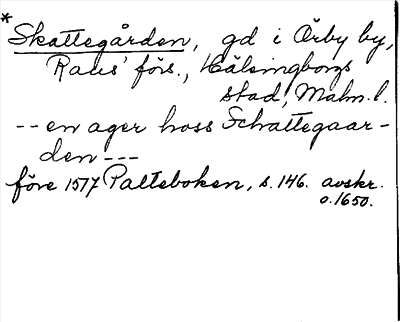 *
Skattegården, gd i Örby by,
Raus' förs., Hälsingborgs
stad, Malm. l.
-- en ager hoss Schattegaar-
den ---
före 1577 Palteboken, s. 146. avskr.
o. 1650.